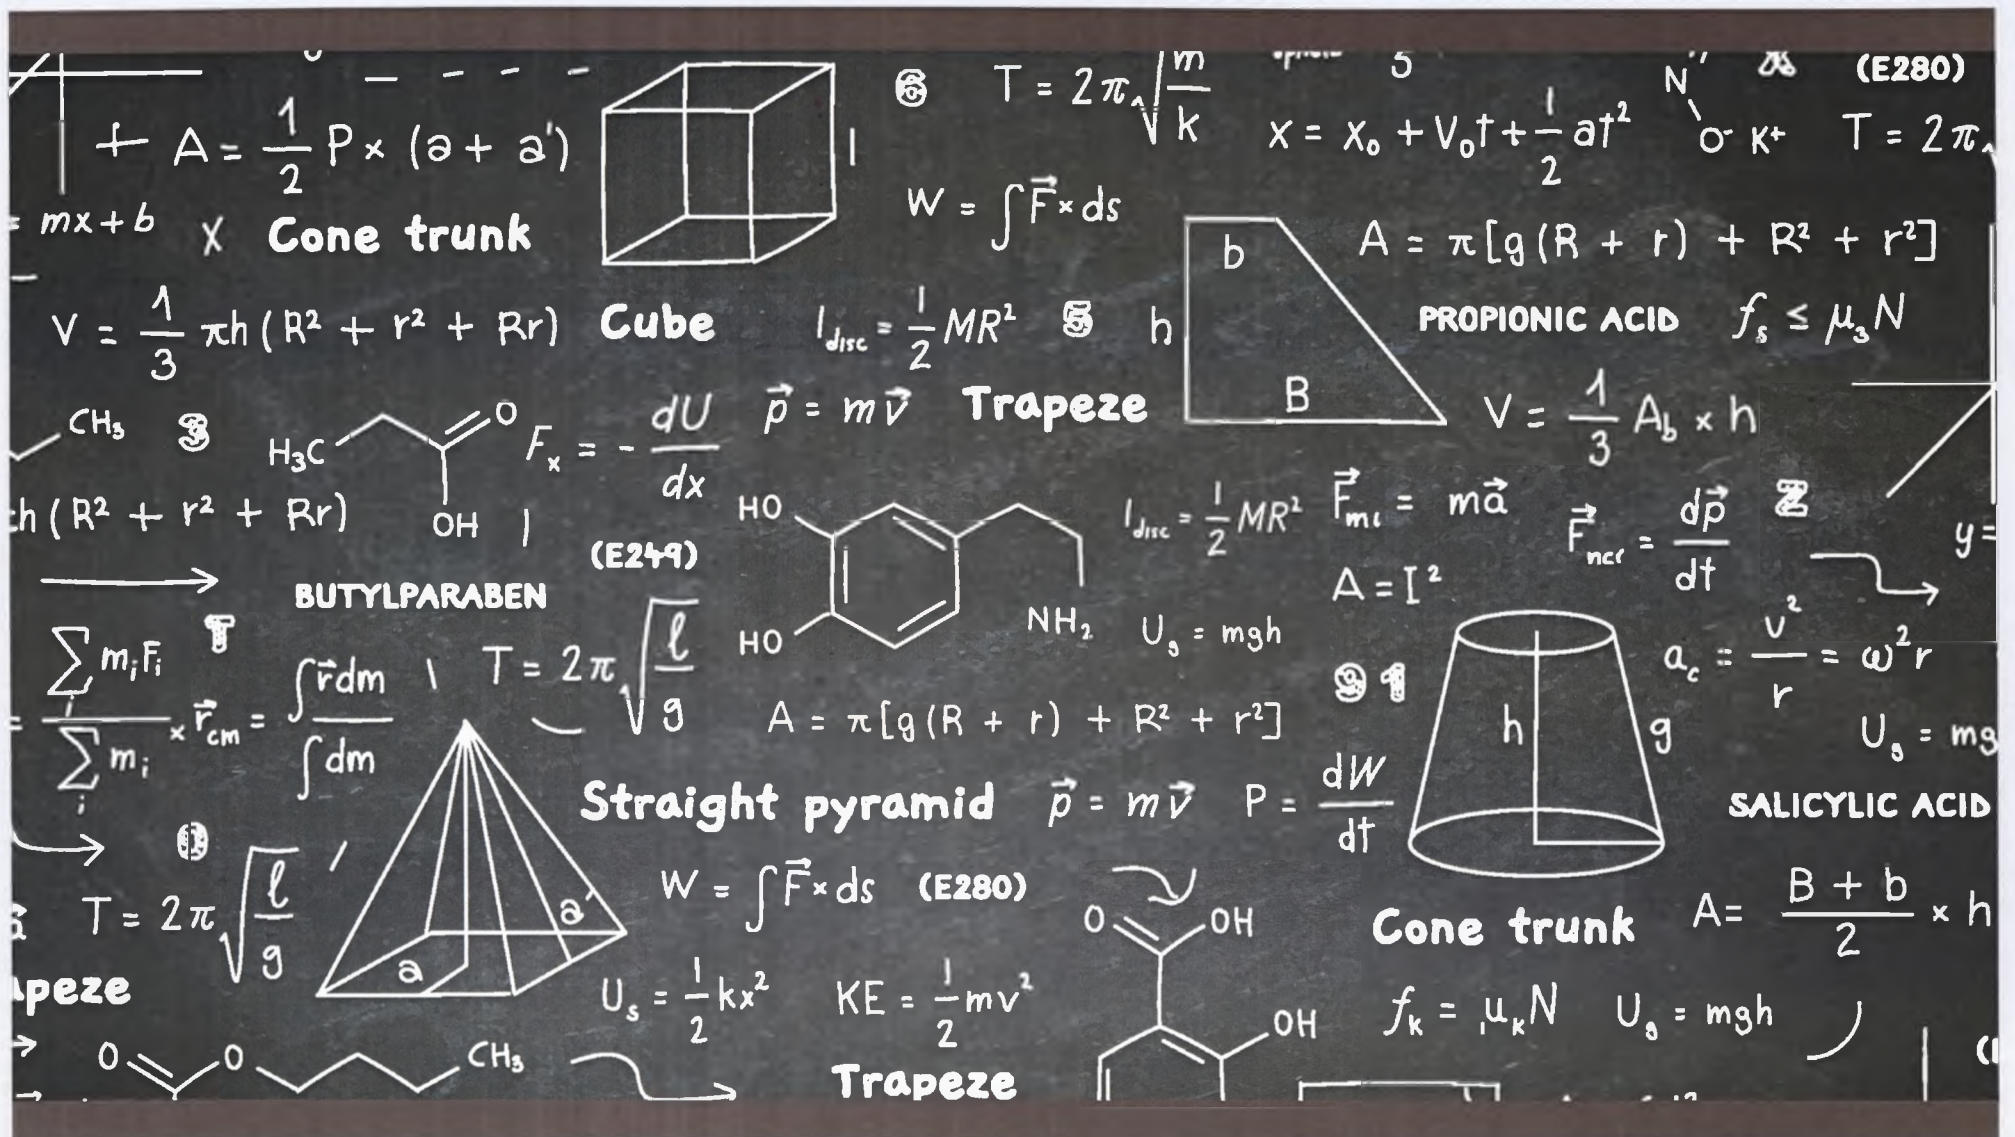 T = 2π√(m/k)
(E280)
+ A = 1/2 P × (a + a')
l
6
x = x₀ + V₀t + 1/2 at²
N
O⁻ K⁺
T = 2π
= mx + b
X
Cone trunk
W = ∫F⃗ × ds
b
A = π[g(R + r) + R² + r²]
V = 1/3 πh (R² + r² + Rr)
Cube
I disc = 1/2 MR²
5
h
PROPIONIC ACID
fₛ ≤ μₛN
CH₃
3
H₃C
O
OH
Fₓ = - dU/dx
p⃗ = mv⃗
Trapeze
B
V = 1/3 A_b × h
h (R² + r² + Rr)
HO
HO
NH₂
I disc = 1/2 MR²
ma⃗
dp⃗/dt
2
y =
(E249)
BUTYLPARABEN
A = I²
U_g = mgh
T
∑ mᵢFᵢ / ∑ mᵢ × r⃗cm = ∫r⃗dm / ∫dm
T = 2π√(l/g)
9 1
h
g
a_c = v²/r = ω²r
A = π[g(R + r) + R² + r²]
U_g = mg
Straight pyramid
p⃗ = mv⃗
P = dW/dt
SALICYLIC ACID
0
T = 2π√(l/g)
a'
a
W = ∫F⃗ × ds
(E280)
O
OH
OH
Cone trunk
A = (B + b)/2 × h
apeze
Uₛ = 1/2 kx²
KE = 1/2 mv²
f_k = μ_kN
U_g = mgh
O
O
CH₃
Trapeze